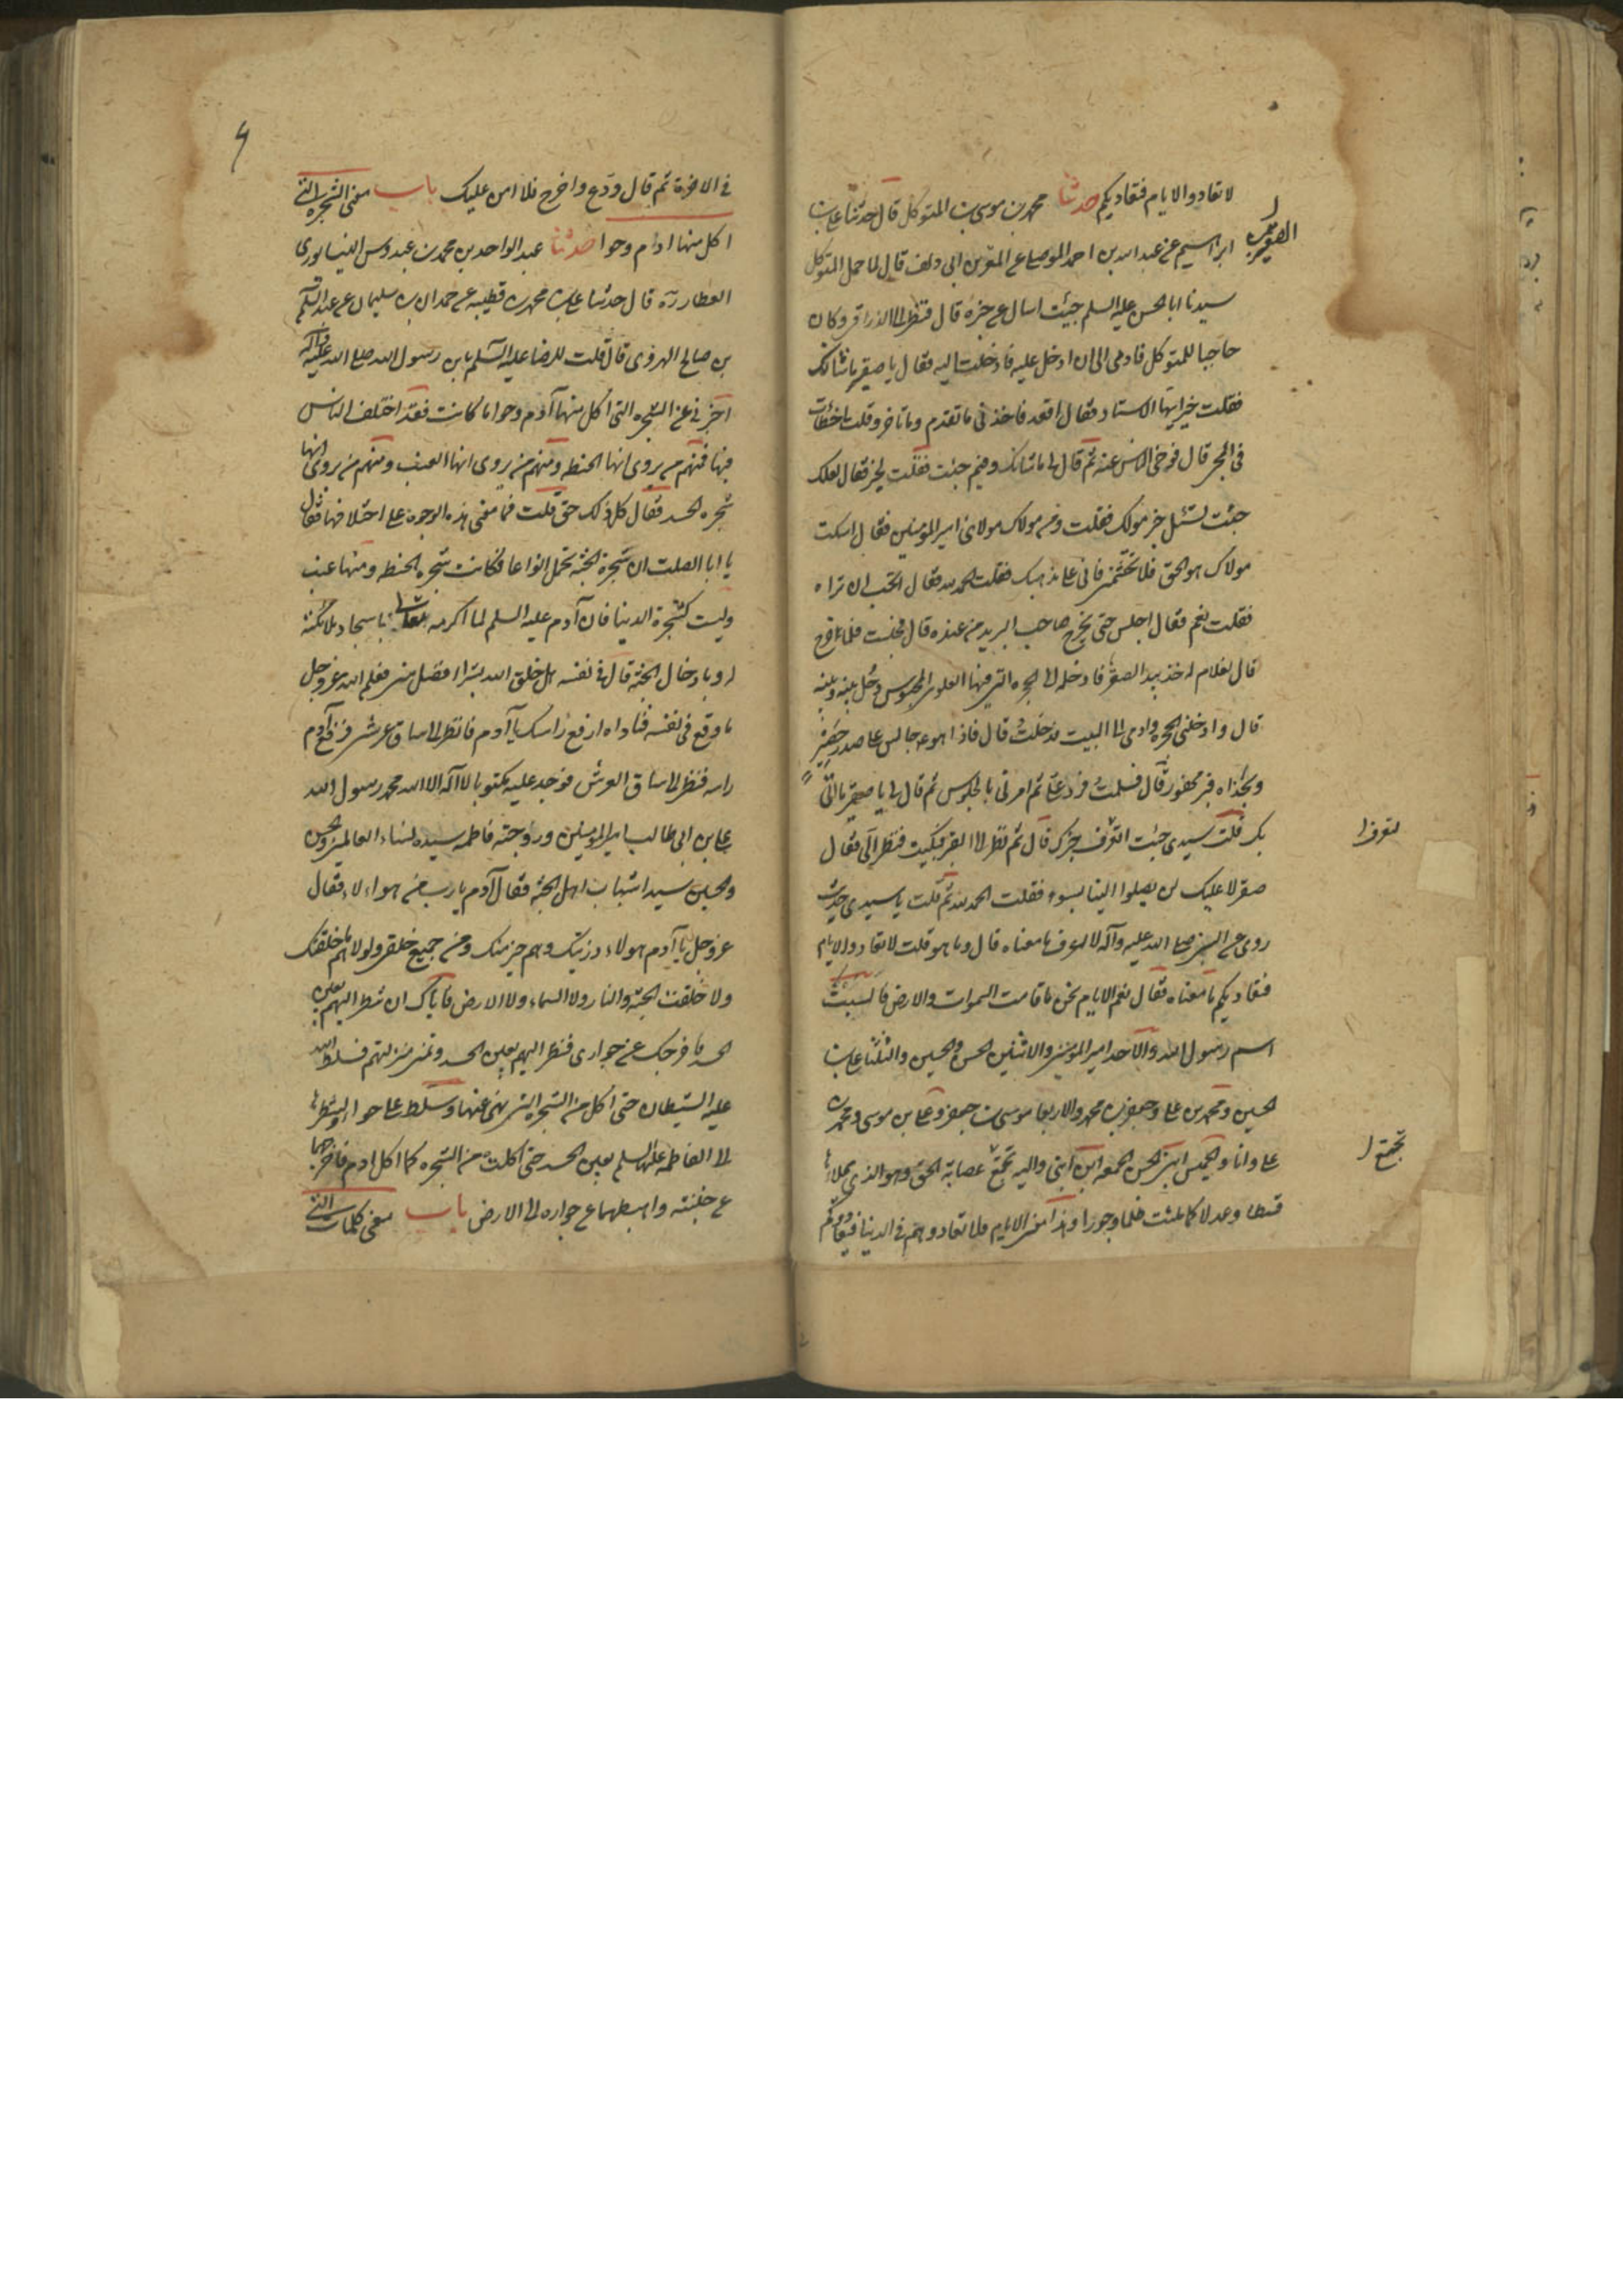 لا تعادوا الايام فتعاديكم حدثنا محمد بن موسى بن المتوكل قال حدثنا على بن
ابراهيم عن عبد الله بن احمد الموصلى عن الصقر بن ابى دلف قال لما حمل المتوكل
سيدنا ابا الحسن عليه السلم جيئت اسال عن خبره قال فنظر الى الزراقى وكان
حاجبا للمتوكل فاومى الى ان ادخل عليه فادخلت اليه فقال يا صقر ما شانك
فقلت خير ايها الاستاد فقال اقعد فاخذنى ما تقدم وما تاخر وقلت اخطات
فى المجى قال فوحى الناس عنه ثم قال لى ما شانك وفيم جئت فقلت لخير فقال لعلك
جئت تسئل خبر مولاك فقلت ومن مولاك مولاى امير المومنين فقال اسكت
مولاك هو الحق فلا تحتشمنى فانى على مذهبك فقلت الحمد لله فقال اتحب ان تراه
فقلت نعم فقال اجلس حتى يخرج صاحب البريد من عنده قال فجلست فلما خرج
قال لغلام له خذ بيد الصقر فادخله الى الحجرة التى فيها العلوى المحبوس وخل بينه وبينه
قال وادخلنى الحجرة واومى الى البيت فدخلت قال فاذا هو ع جالس على صدر حصير
وبحذاه قبر محفور قال فسلمت فرد على ثم امرنى بالجلوس ثم قال لى يا صقر ما اتى
بك قلت سيدى جئت اتعرف خبرك قال ثم نظرت الى القبر فبكيت فنظر الى فقال
صقر لا عليك لن يصلوا الينا بسوء فقلت الحمد لله ثم قلت يا سيدى حديث
روى عن النبى صلى الله عليه وآله لا اعرف ما معناه قال وما هو قلت لا تعادوا الايام
فتعاديكم ما معناه فقال نعم الايام نحن ما قامت السموات والارض فالسبت
اسم رسول الله والاحد امير المومنين والاثنين الحسن والحسين والثلثا على بن
الحسين ومحمد بن على وجعفر بن محمد والاربعا موسى بن جعفر وعلى بن موسى ومحمد بن
على وانا والخميس ابنى الحسن والجمعه ابن ابنى واليه تجمع عصابة الحق وهو الذى يملاها
قسطا وعدلا كما ملئت ظلما وجورا وهذا معنى الايام فلا تعادوهم فى الدنيا فيعادوكم
الصقر
لتعرف
تجتمع
فى الاخرة ثم قال ودع واخرج فلا امن عليك باب معنى الشجرة التى
اكل منها ادم وحوا حدثنا عبد الواحد بن محمد بن عبدوس النيسابورى
العطار ره قال حدثنا على بن محمد بن قتيبه عن حمدان بن سليمان عن عبد السلم
بن صالح الهروى قال قلت للرضا عليه السلم يابن رسول الله صلى الله عليه وآله
اخبرنى عن الشجره التى اكل منها آدم وحوا ما كانت فقد اختلف الناس
فيها فمنهم من يروى انها الحنطه ومنهم من يروى انها العنب ومنهم من يروى انها
شجره الحسد فقال كل ذلك حق قلت فما معنى هذه الوجوه على اختلافها فقال
يا ابا الصلت ان شجرة الجنة تحمل انواعا فكانت شجره الحنطه ومنها عنب
وليست كشجرة الدنيا فان آدم عليه السلم لما اكرمه الله تعالى باسجاد ملائكته
له وبادخال الجنة قال فى نفسه هل خلق الله بشرا افضل منى فعلم الله عز وجل
ما وقع فى نفسه فناداه ارفع راسك يا آدم فانظر الى ساق عرشى فرفع آدم
راسه فنظر الى ساق العرش فوجد عليه مكتوبا لا آله الا الله محمد رسول الله
على بن ابى طالب امير المومنين وزوجته فاطمه سيده نساء العالمين والحسن
والحسين سيدا شباب اهل الجنة فقال آدم يا رب من هولاء فقال
عز وجل يا آدم هولاء ذريتك وهم خير منك ومن جميع خلقى ولولاهم ما خلقتك
ولا خلقت الجنة والنار ولا السماء ولا الارض فاياك ان تنظر اليهم بعين
الحسد فاخرجك عن جوارى فنظر اليهم بعين الحسد وتمنى منزلتهم فسلط الله
عليه الشيطان حتى اكل من الشجرة التى نهى عنها وسلط على حوا لنظرها
الى الفاطمه عليها السلم بعين الحسد حتى اكلت من الشجره كما اكل ادم فاخرجهما
عن جنته واهبطهما عن جواره الى الارض باب معنى كلمات التى